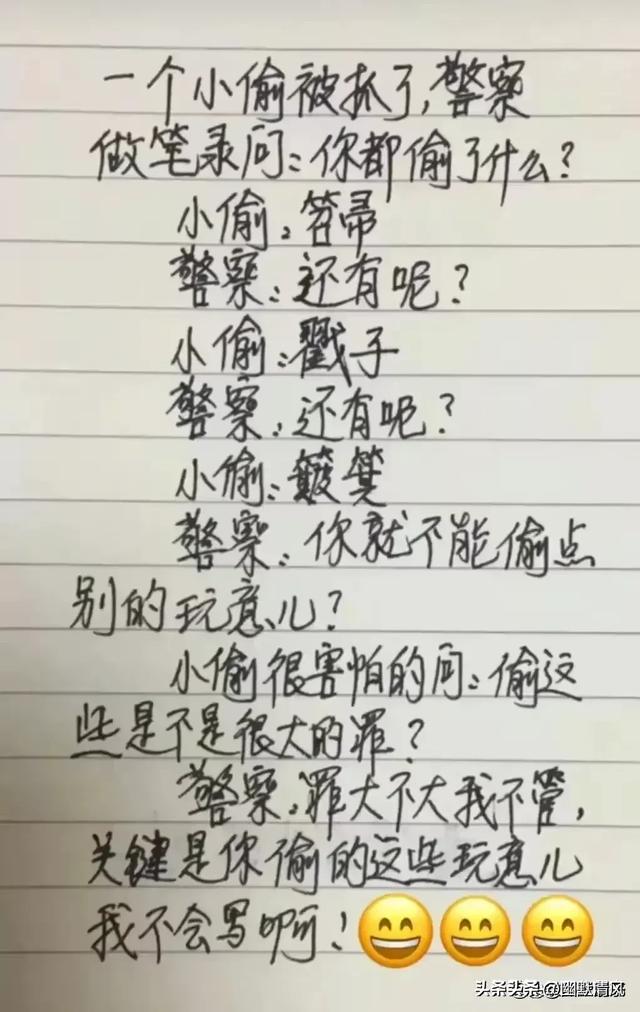 一个小偷被抓了,警察
做笔录问:你都偷了什么?
小偷:笤帚
警察:还有呢?
小偷:戳子
警察:还有呢?
小偷:簸箕
警察:你就不能偷点
别的玩意儿?
小偷很害怕的问:偷这
些是不是很大的罪?
警察:罪大不大我不管,
关键是你偷的这些玩意儿
我不会写啊!
头条 @幽默清风